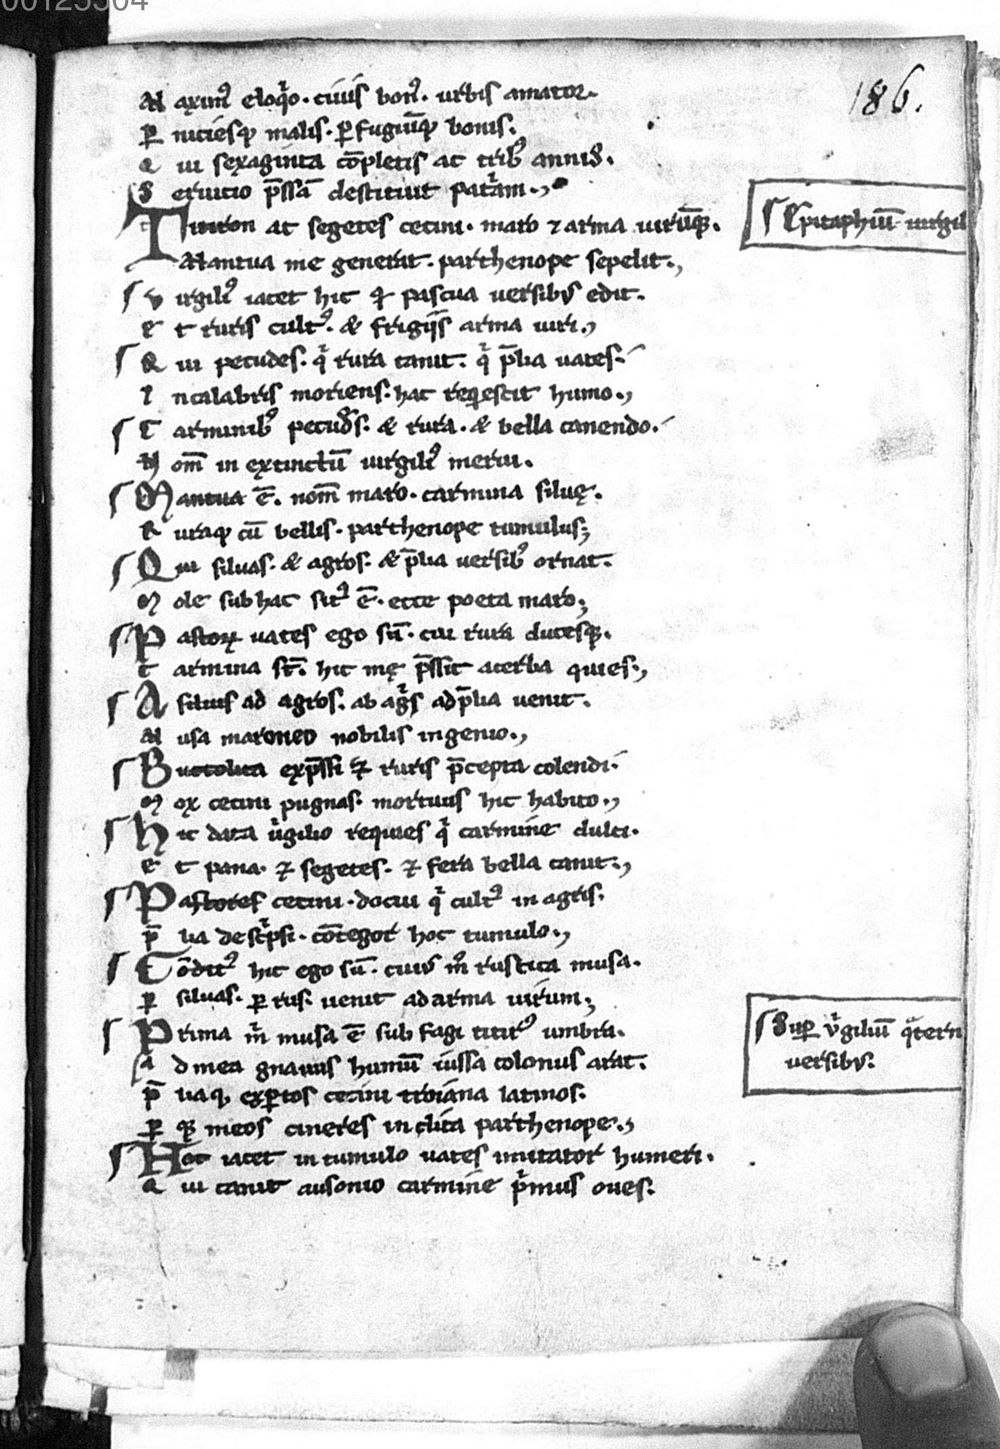 00125504
186.
M axim᷒ eloq̓o. ciuis bon᷒. urbis amator.
P̲ niciesq̨ malis. p̲fugiūq̨ bonis.
Q ui sexaginta cōpletis ac trib᷒ annis.
S eruitio p̄ssā destituit pat̓am.,
Tyiron ac segetes cecini. maro ⁊ arma uirūq̨.
Mantua me genuit. parthenope sepelit.,
V irgili᷒ iacet hic q̓ pascua versibus edit.
E t ruris cult᷒. & frigiis arma uiri.,
Q ui pecudes. q̓ rura canit. q̓ p̄lia uates.
I ncalabris moriens. hac reqescit humo.,
C arminib᷒ pecudes. & rura. & bella canendo.
N om̄ in extinctū uirgili᷒ merui.
Mantua ē. nom̄ maro. carmina siluę.
R uraq̨ cū bellis. parthenope tumulus;
Qui siluas. & agros. & p̄lia versib᷒ ornat.
M ole sub hac sit᷒ ē. ecce poeta maro;
P astoꝝ uates ego sū. cui rura ducesq̨.
C armina st̄. hic mę p̄ssit acerba quies.,
A siluis ad agros. ab ag̓s ad p̄lia uenit.
M usa maroneo nobilis ingenio.,
Bucolica exp̄ssi ⁊ ruris p̄cepta colendi.
M ox cecini pugnas. mortuus hic habito.,
Hic data v̓gilio requies q̓ carmine dulci.
E t pana. ⁊ segetes. ⁊ fera bella canit.,
Pastores cecini. docui q̓ cult᷒ in agris.
P̄ lia desc̓psi. cōtegor hoc tumulo.,
Cōdit᷒ hic ego sū. cuius m̊ rustica musa.
P̲ siluas. p̲ rus. uenit ad arma uirum;
Prima m̓ musa ē sub fagi titir᷒ umbra.
A d mea gnauus humū iussa colonus arat.
P̄ liaq̨ exp̲tos cecini troiana latinos.
P̲ q̨ meos cineres inclita parthenope.,
Hoc iacet in tumulo uates imitator humeri.
Q ui canit ausonio carmine p̓mus oues.
Epitaphiū uirgil
Sup̲ v̓giliū q̓tern
versibus.